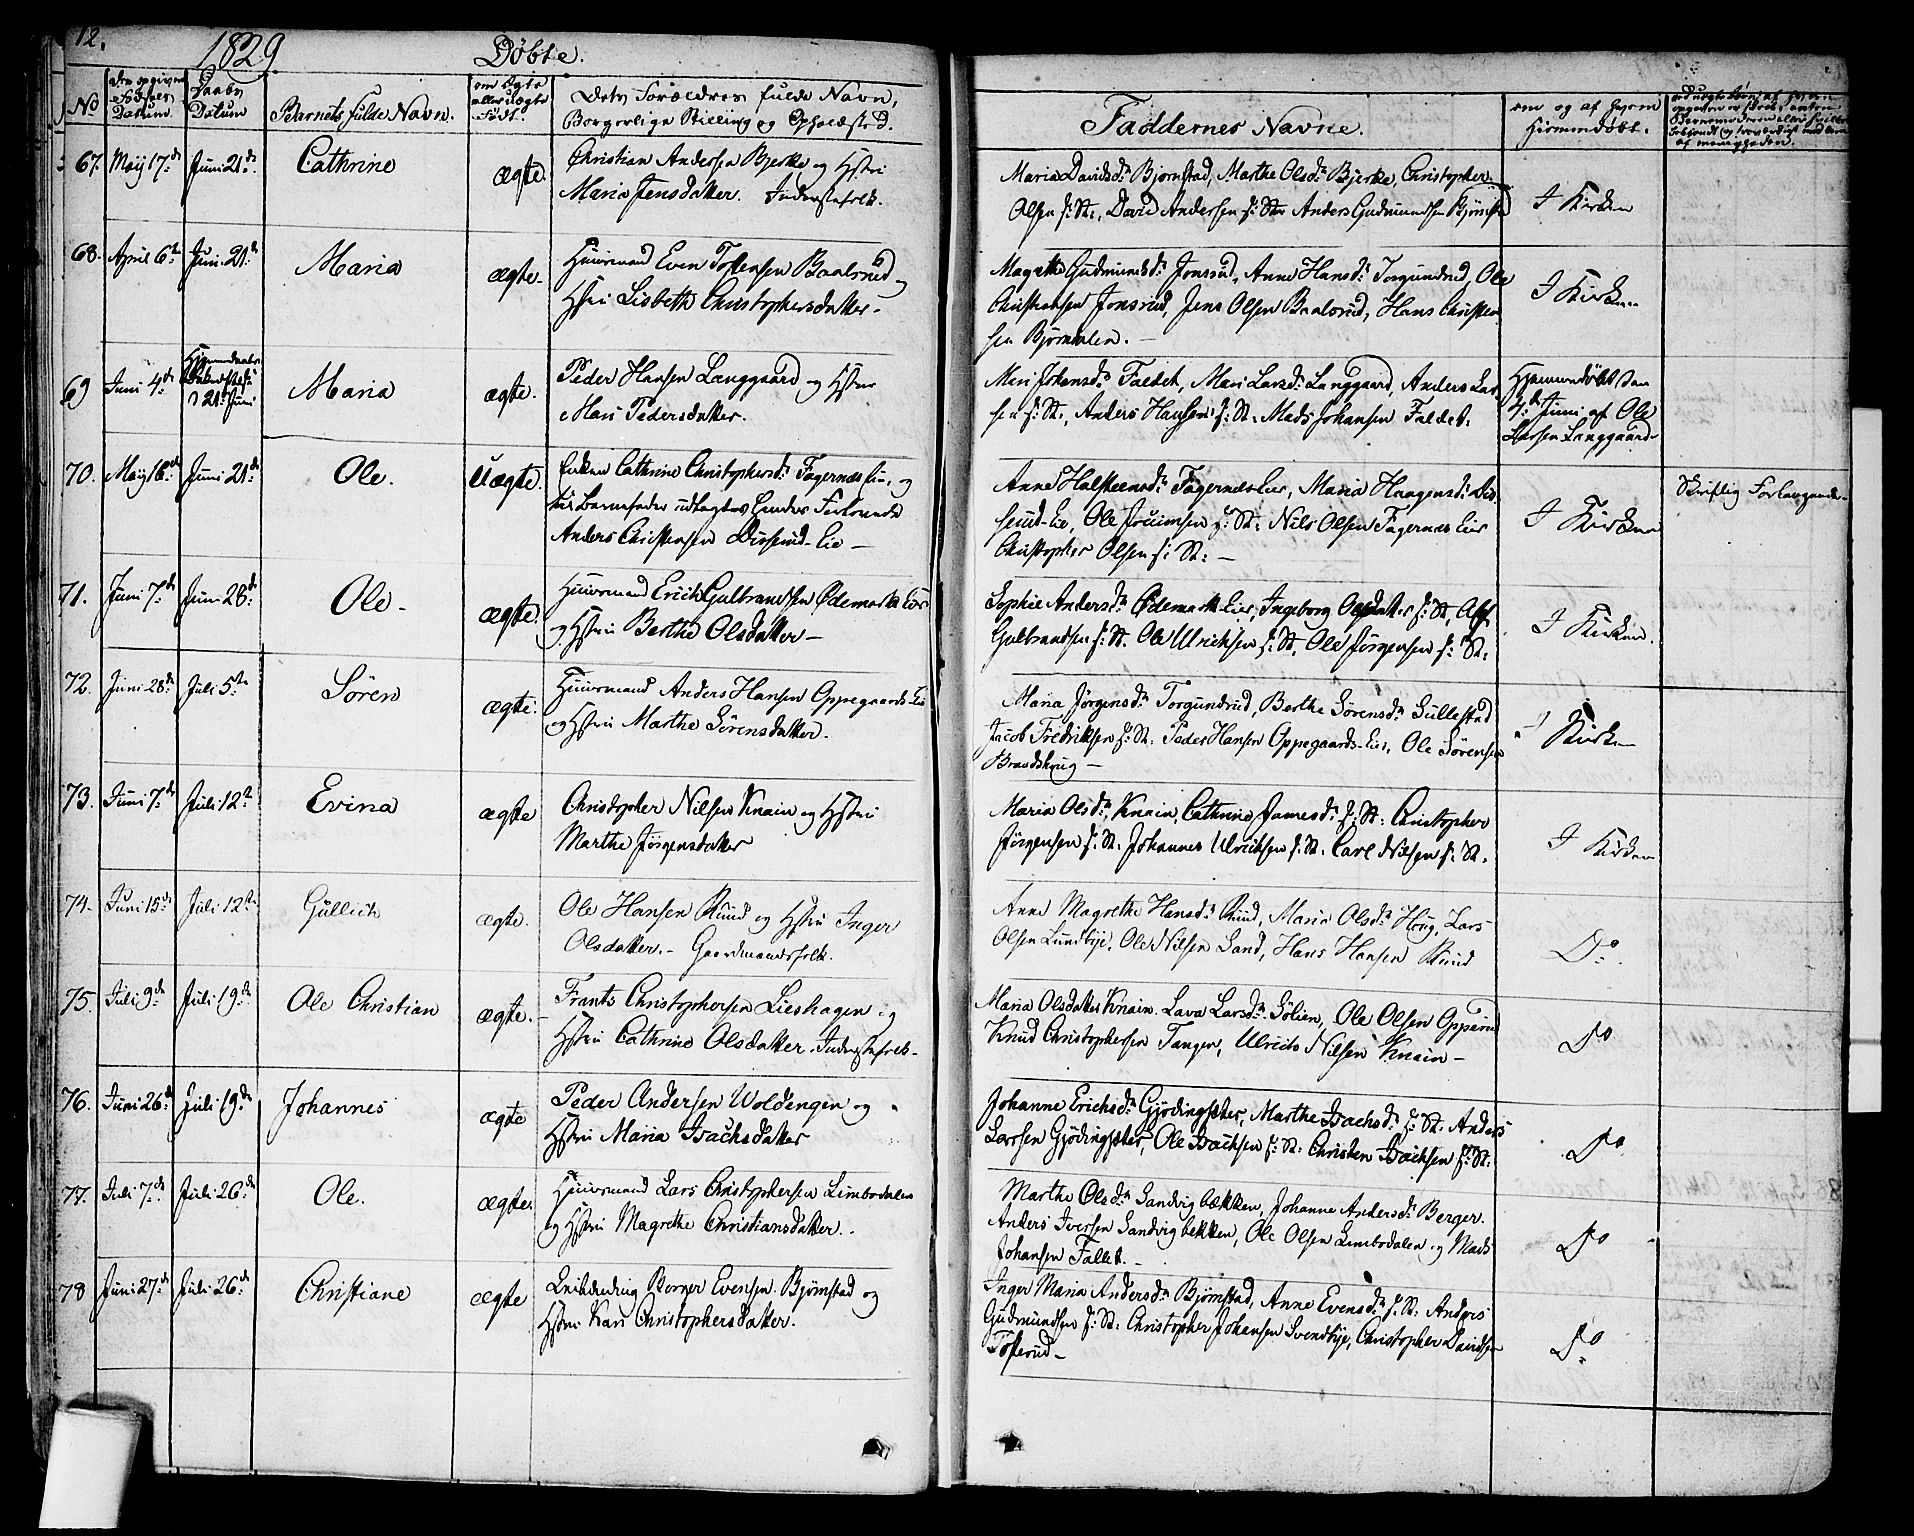 12.
1829.
Döbte.
No
Födsels Datum.
Daabs Datum
Barnets fulde Navn.
om Ægte eller uægte Født.
Dets Forældres fulde Navn,
Borgerlige Stilling og Opholdsted.
Faddernes Navne.
om og af hvem
Hjemmedöbt.
67. Maij 17de Juni 21de Cathrine ægte. Christian Andersen Bjerke og Hstrü
Maria Jensdatter. Inderstefolk.
Maria Davidsdr Bjørnstad, Marthe Olsdr Bjerke, Christopher
Olsen f: St:, David Andersen f: St: Anders Gudmundsen
I Kirken
68. April 6te Juni 21de Maria ægte. Huusmand Even Tostensen Baalsrud og
Hstrü Lisbeth Christophersdatter.
Magrethe Gudmundsdr Jonsrud, Anne Hansdr Torgundrud, Ole
Christensen Jonsrud, Jens Olsen Baalsrud, Hans Christen
sen Bjørndalen.
I Kirken
69 Juni 4de 21de Juni Maria ægte. Peder Hansen Langgaard og Hstrü
Mari Pedersdatter.
Mari Johansdr Faldet, Mari Larsdr Langgaard, Anders Lar
sen f: St:, Anders Hansen f: St: Mads Johansen Faldet.
Hjemmedöbt den
4de Juni af Ole
Larsen Langgaard
70. Maij 16de Juni 21de Ole. Uægte. Enken Cathrine Christophersdr Fagernæs og
til Barnefader udlagdes hendes
Anders Christensen
Anne Halsteensdr Fagernæs Eier, Maria Haagensdr
Ole f: St: Nils Olsen Fagernæs Eier
Christopher Olsen f: St:
I Kirken
Skriftlig Forlangende
71. Juni 7de Juni 28de Ole. ægte. Huusmand Erich Gulbrandsen Ødemark Eier
og Hstrü Berthe Olsdatter
Sophie Andersdr Ødemark Eier, Ingeborg Olsdatter f: St,
Gulbrandsen f: St. Ole Ulrichsen f: St, Ole Jörgensen f: St:
I Kirken.
72. Juni 28de Juli 5te Sören ægte. Huusmand Anders Hansen Oppegaards Eie
og Hstrü Marthe Sörensdatter.
Maria Jörgensdr Torgundrud, Berthe Sörensdr Gullestad
Jacob Fredriksen f: St: Peder Hansen Oppegaards Eier, Ole Sörensen
Brandskoug
I Kirken
73. Juni 7de Juli 12te Evina ægte Christopher Nilsen Knain og Hstrü
Marthe Jörgensdatter
Maria Olsdr Knain, Cathrine Jonsdr f: St: Christopher
Jörgensen f: St. Johannes Ulrichsen f: St: Carl Nilsen f: St.
I Kirken
74. Juni 15de Juli 12te Gullich ægte. Ole Hansen Ruud og Hstrü Inger
Olsdatter. Gaardmandsfolk.
Anne Magrethe Hansdr Ruud, Maria Olsdr Houg, Lars
Olsen Lundbye, Ole Nilsen Sand, Hans Hansen Ruud
Do
75. Juli 9de Juli 19de Ole Christian ægte. Frants Christophersen Lieshagen og
Hstrü Cathrine Olsdatter. Inderstefolk.
Maria Olsdatter Knain. Lava Larsdr Sölien, Ole Olsen Opperud
Knud Christophersen Tangen, Ulrich Nilsen Knain
Do
76. Juni 26de Juli 19de Johannes ægte Peder Andersen Woldengen og
Hstrü Maria Isachsdatter
Johanne Erichsdr Gjödingsæter, Marthe Isachsdr f: St: Anders
Larsen Gjödingsæter, Ole Isachsen f: St: Christen Isachsen f: St:
Do
77. Juli 7de Juli 26de Ole. ægte. Huusmand Lars Christophersen Limbodalen
og Hstrü Magrethe Christiansdatter.
Marthe Olsdr Sandvigbækken, Johanne Andersdr Berger.
Anders Iversen Sandvigbekken, Ole Olsen Limbodalen og Mads
Johansen Fallet.
Do
78 Juni 27de Juli 26de Christiane ægte Berger Evensen Bjørnstad og
Hstrü Kari Christophersdatter.
Inger Maria Andersdr Bjørnstad, Anne Evensdr f: St: Anders
Gudmundsen f: St: Christopher Johansen Svendbye, Christopher Davidsen
Tosterud
Do